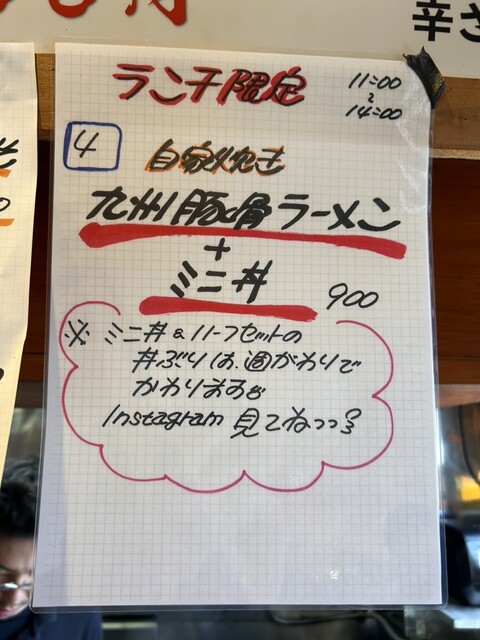 ランチ限定
11:00
～
14:00
4
自家炊き
九州豚骨ラーメン
+
ミニ丼
900
※ ミニ丼&ハーフセットの
丼ぶりは、週がわりで
かわります
Instagram 見てねっっ
辛さ